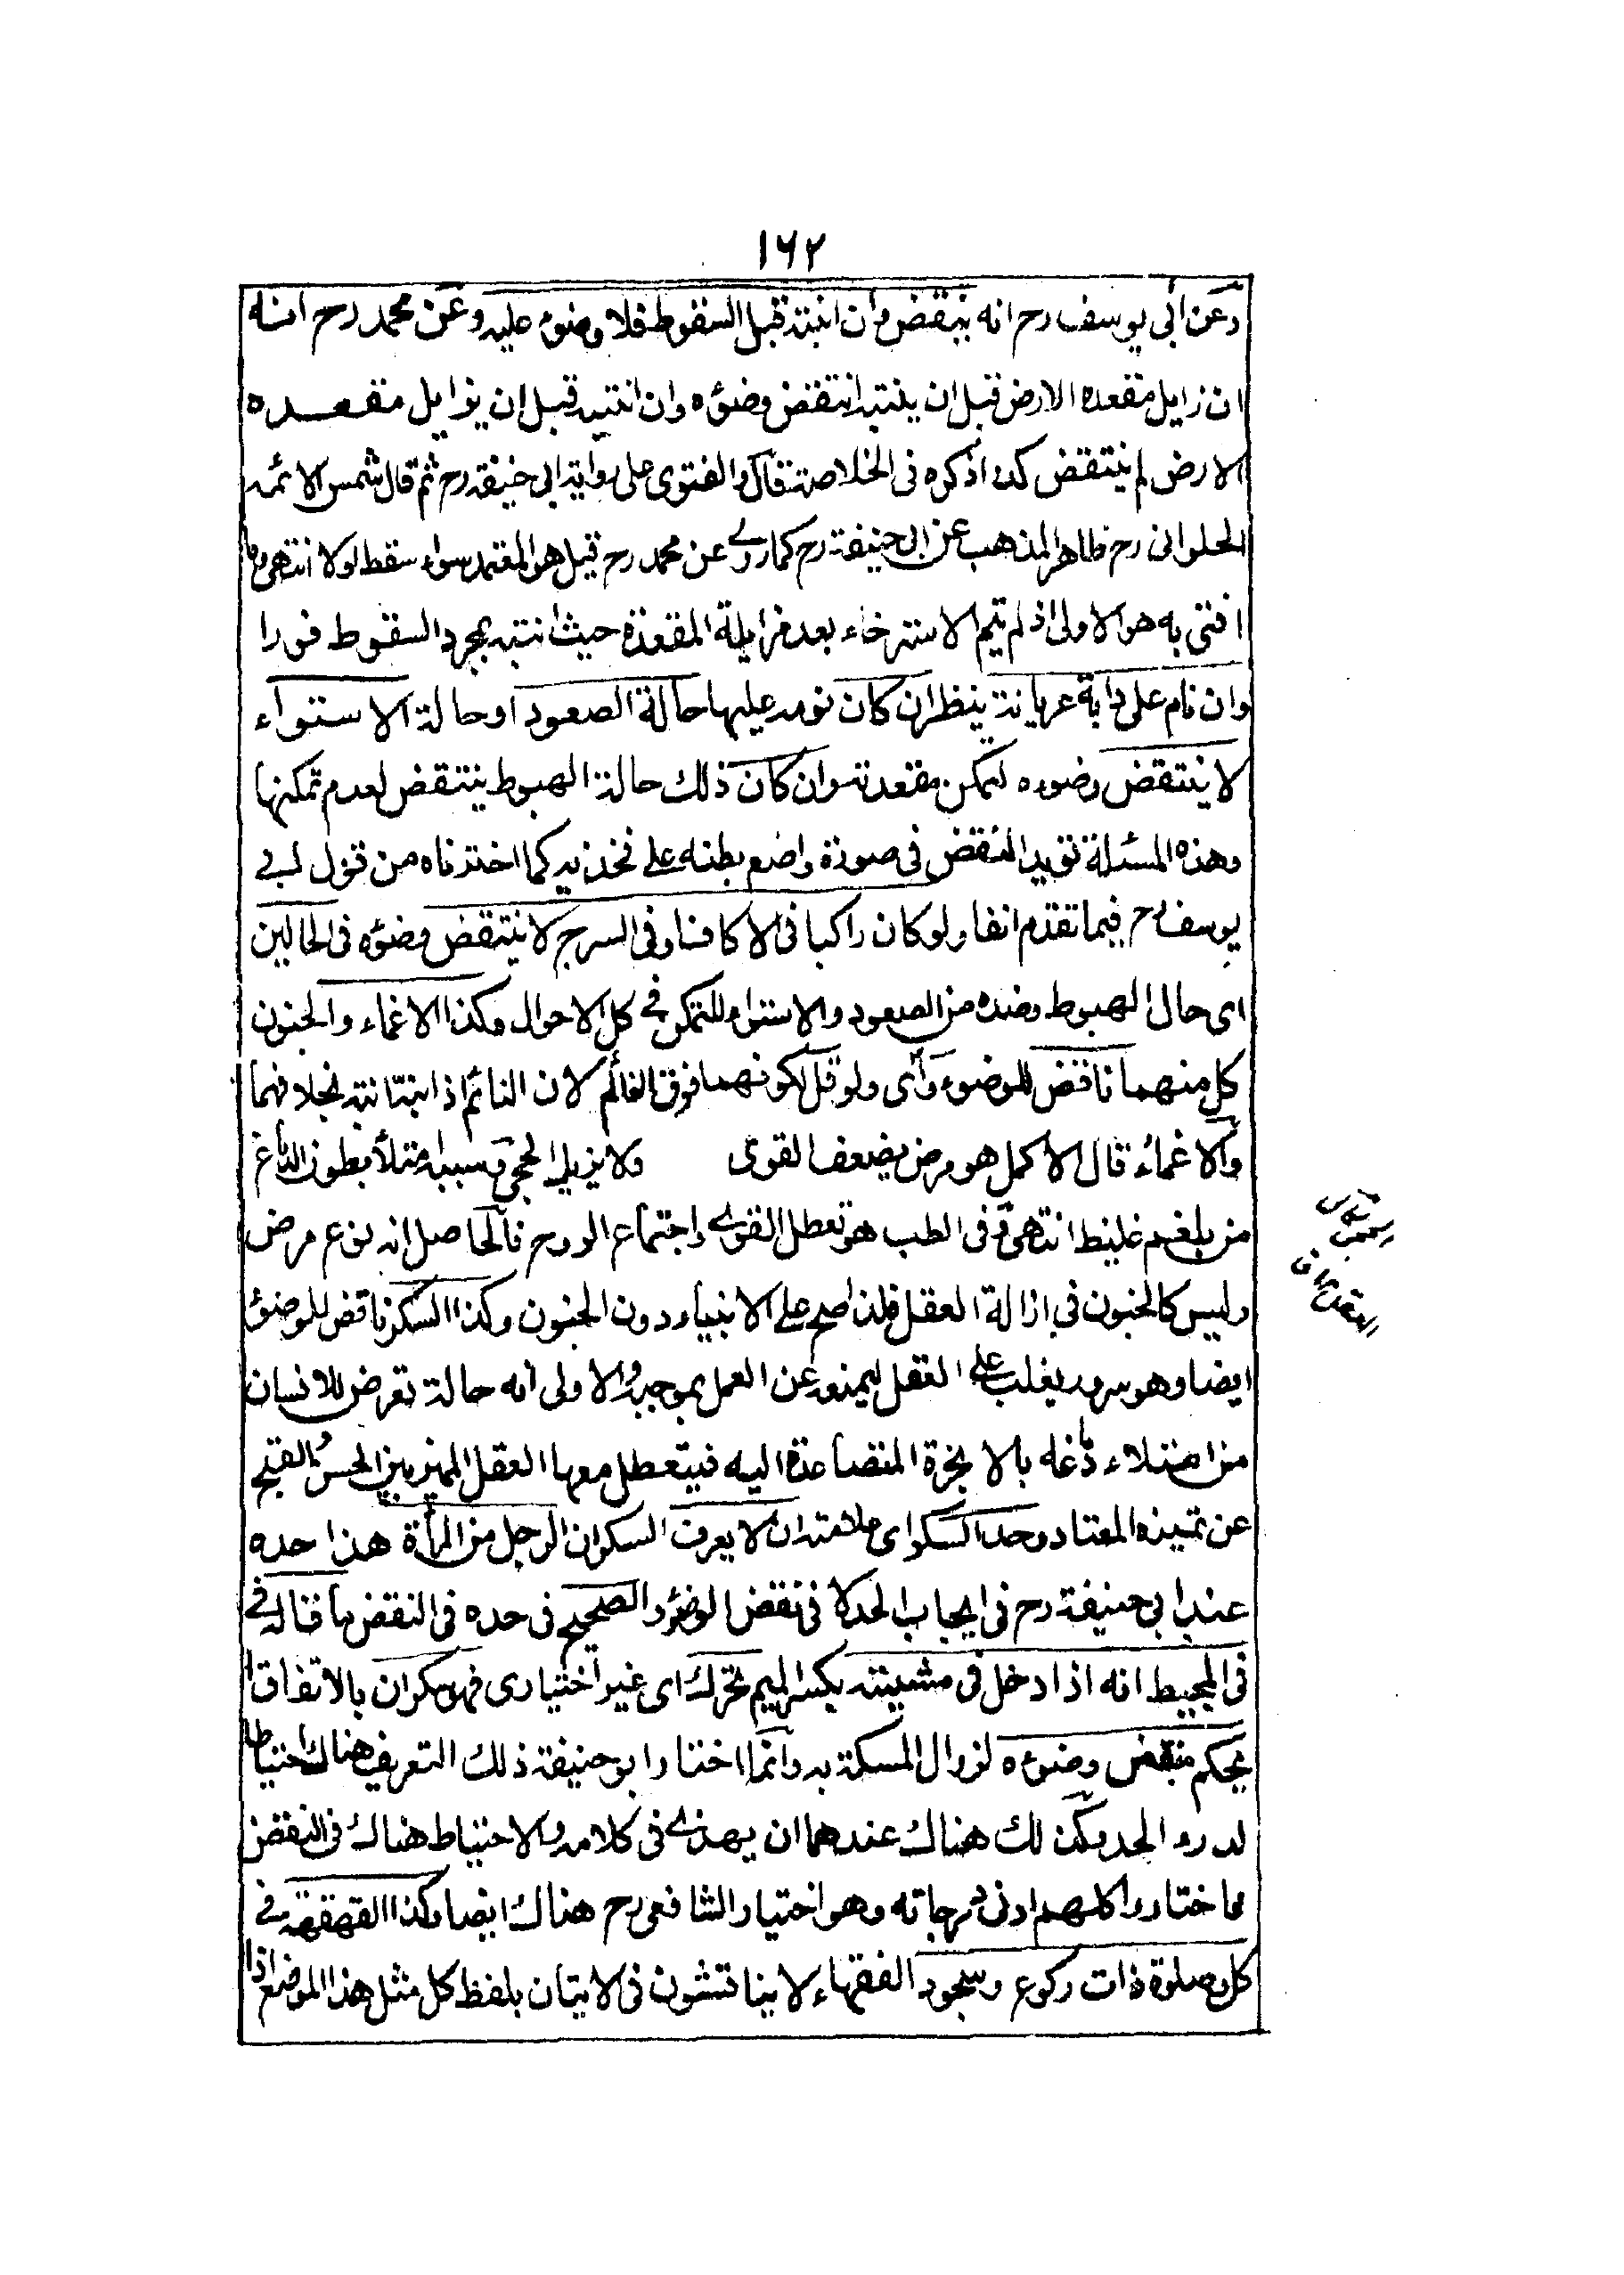 ١٦٢
وعن أبي يوسف رح انه ينتقض وأن انتبه قبل السقوط فلا وضوء عليه وعن محمد رح انه
ان زايل مقعده الارض قبل ان ينتبه انتقض وضوءه وان انتبه قبل ان يزايل مقعده
الارض لم ينتقض كذا ذكره فى الخلاصة قال والفتوى على رواية ابى حنيفة رح ثم قال شمس الائمه
الحلوانى رح ظاهر المذهب عن ابى حنيفة رح كما روى عن محمد رح قيل هو المعتمد سواء سقط اولا انتهى وما
افتى به هو الاولى اذ لم يتم الاسترخاء بعد مزايلة المقعدة حيث انتبه بمجرد السقوط فورا
وان نام على دابة عريانة ينظر ان كان نومه عليها حالة الصعود او حالة الاستواء
لا ينتقض وضوءه لتمكن مقعدته وان كان ذلك حالة الهبوط ينتقض لعدم تمكنها
وهذه المسئلة تؤيد النقض فى صورة واضع بطنه على فخذيه كما اخترناه من قول ابى
يوسف رح فيما تقدم انفا ولو كان راكبا فى الاكاف او فى السرج لا ينتقض وضوءه فى الحالين
اى حال الهبوط وضده من الصعود والاستواء للتمكن فى كل الاحوال وكذا الاغماء والجنون
كل منهما ناقض للوضوء وأى ولو قل لكونهما فوق النائم لان النائم اذا نبه انتبه بخلافهما
والاغماء قال الاكمل هو مرض يضعف القوى ولا يزيل الحجى وسببه امتلأ بطون الدماغ
من بلغم غليظ انتهى وفى الطب هو تعطل القوى واجتماع الروح فالحاصل انه نوع مرض
وليس كالجنون فى ازالة العقل فلذا صح على الانبياء دون الجنون وكذا السكر ناقض للوضوء
ايضا وهو سرور يغلب على العقل ليمنعه عن العمل بموجبه والاولى انه حالة تعرض للانسان
من امتلاء دماغه بالابخرة المتصاعدة اليه فيتعطل معها العقل المميز بين الحسن والقبح
عن تميزه المعتاد وحد السكر اى علامته ان لا يعرف السكران الرجل من المرأة هذا حده
عند ابى حنيفة رح فى ايجاب الحد لا فى نقض الوضوء والصحيح فى حده فى النقض ما قاله فى
فى المحيط انه اذا دخل فى مشيته بكسر الميم تحرك اى غير اختيارى فهو سكران بالاتفاق
يحكم بنقض وضوءه لزوال المسكة به وانما اختار ابو حنيفة ذلك التعريف هناك احتياطا
لدرء الحد ويكن لك هناك عندهما ان يهذى فى كلامه والاحتياط هناك فى النقض
فاختاروا كلهم ادنى درجاته وهو اختيار الشافعى رح هناك ايضا وكذا القهقهة فى
كل صلوة ذات ركوع وسجود الفقهاء لا يناقشون فى الاتيان بلفظ كل مثل هذا الموضع اذا